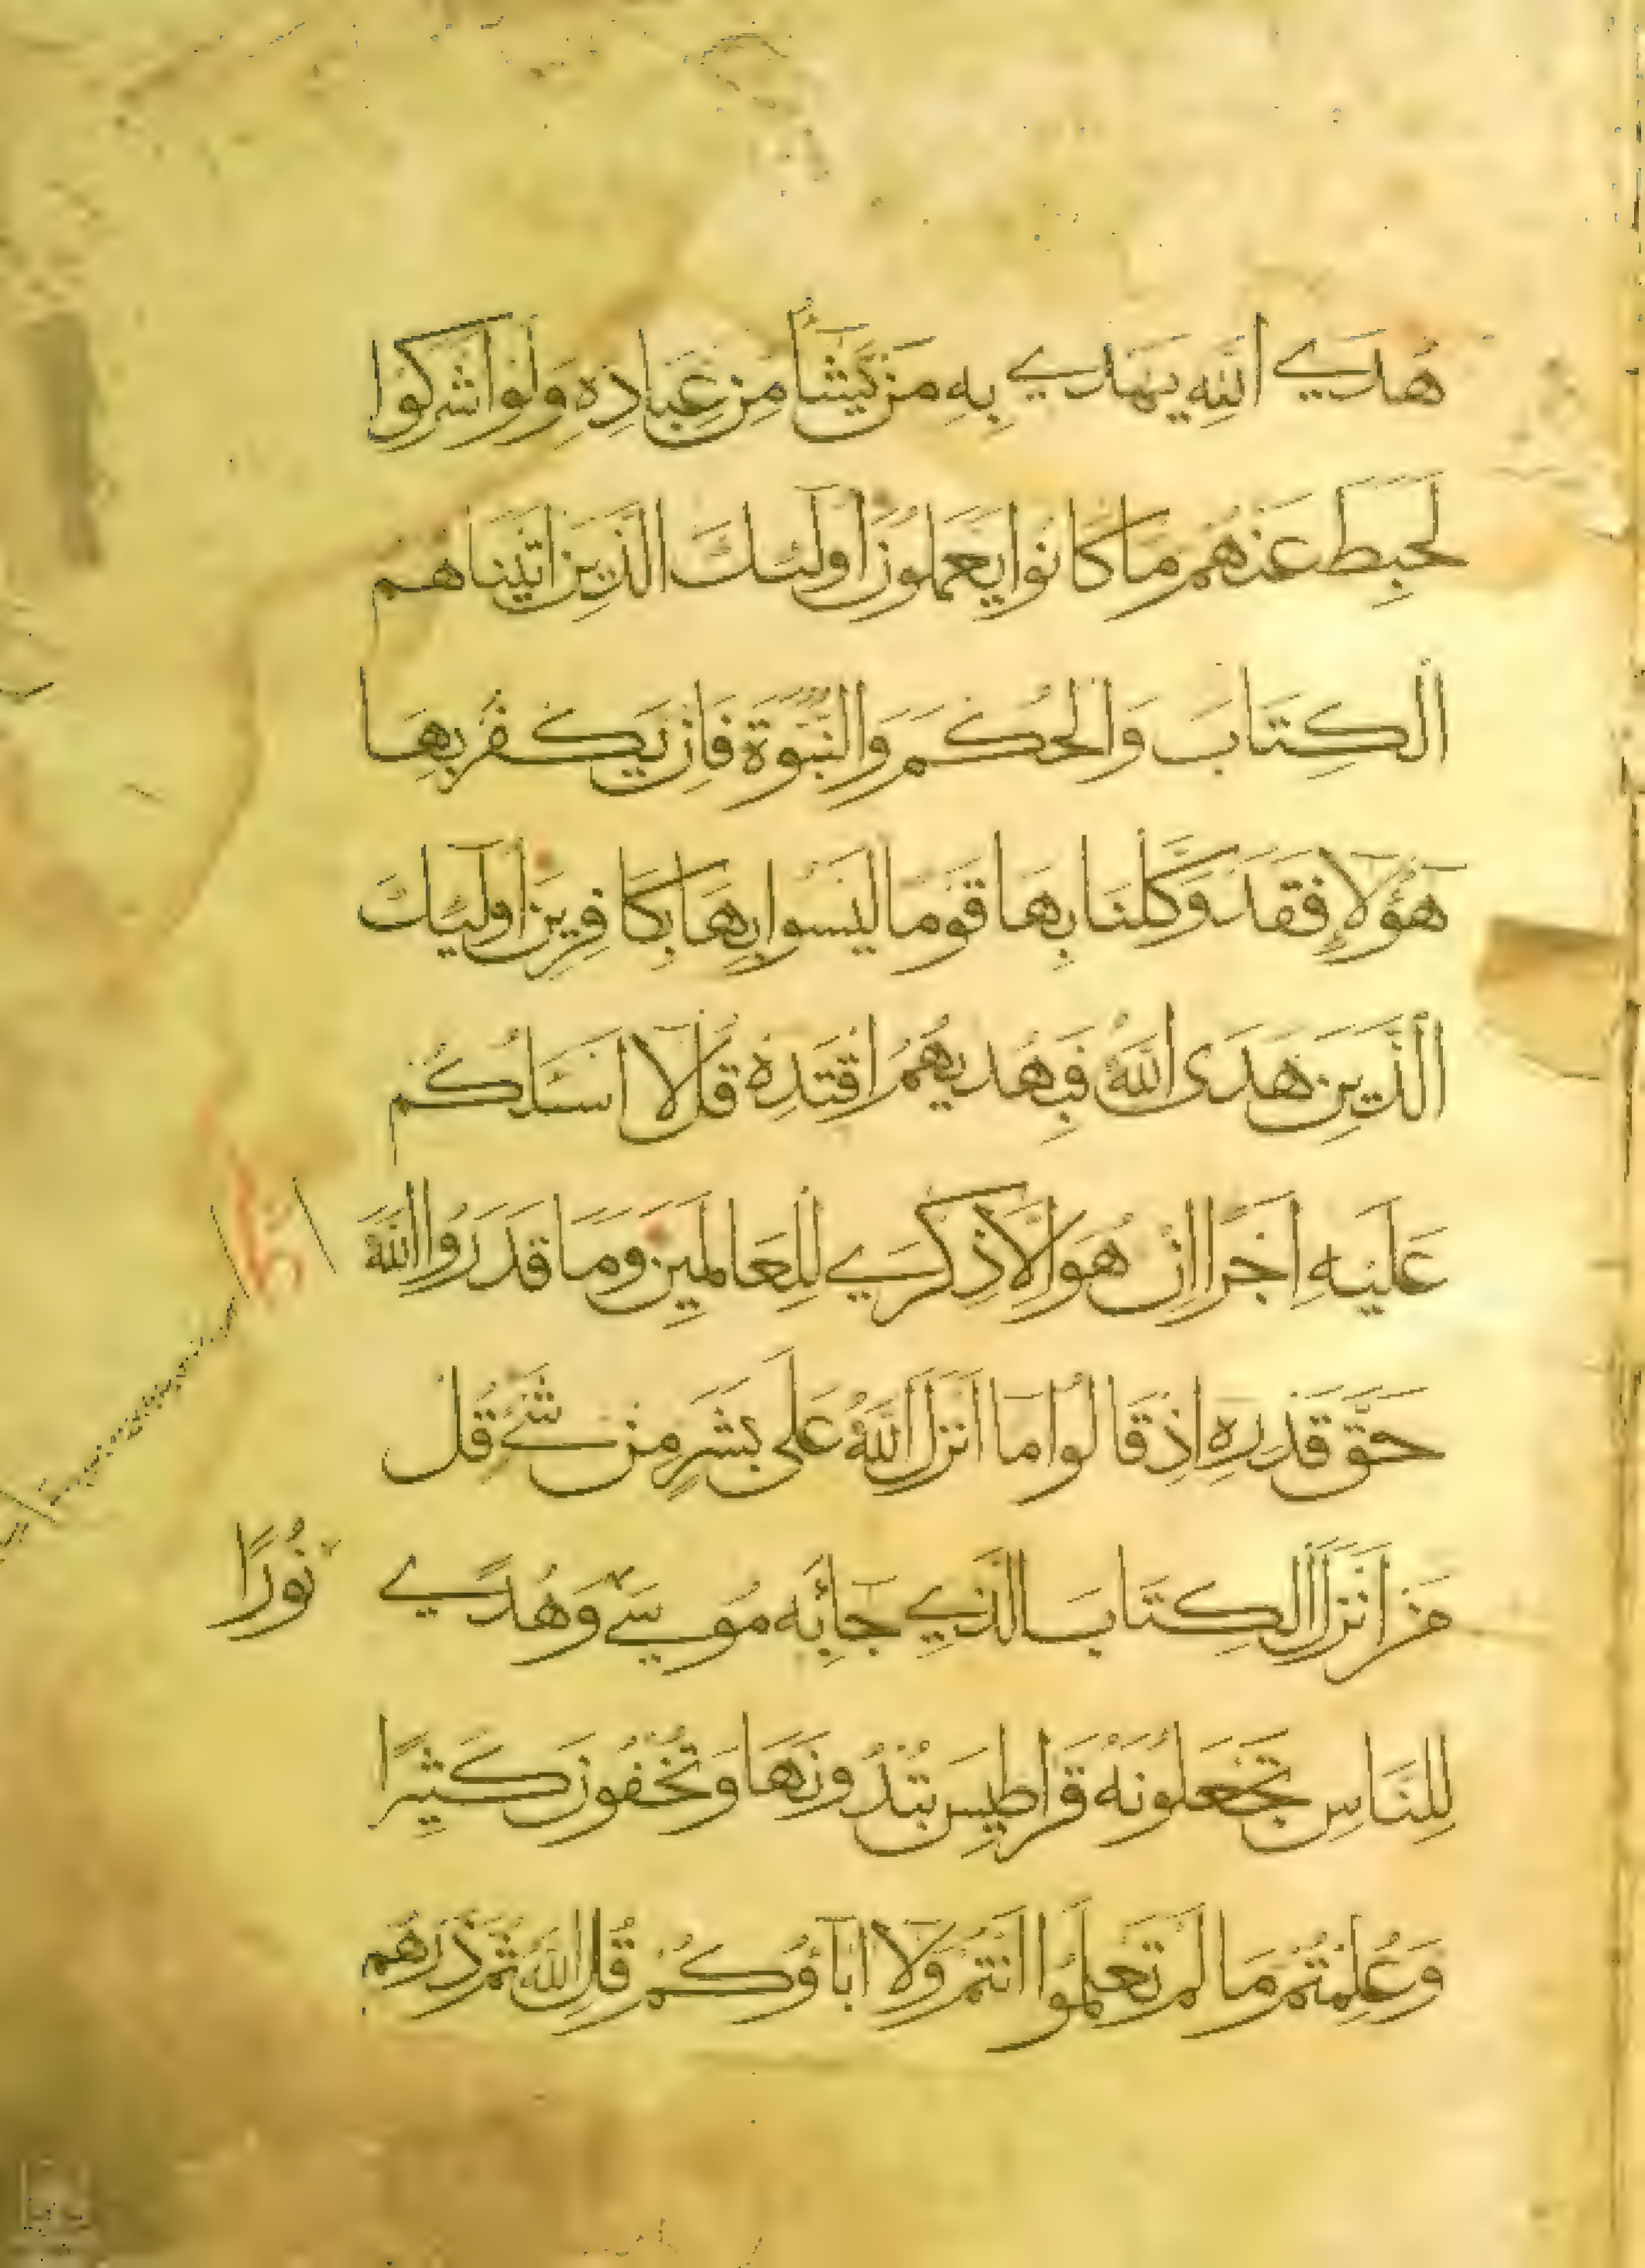 هُدَي اللَّهِ يَهْدِي بِهِ مَنْ يَّشَأُ مِنْ عِبَادِهِ وَلَوْ اشْرَكُوْا
لَحَبِطَ عَنْهُمْ مَا كَانُوا يَعْمَلُونَ اولٰئِكَ الَّذِينَ اتَيْنَاهُم
الْكِتَابَ وَالْحُكْمَ وَالنُّبُوَّةَ فَاِنْ يَكْفُرْ بِهَا
هٰؤُلَاءِ فَقَدْ وَكَّلْنَا بِهَا قَوْمًا لَيْسُوا بِهَا بِكَافِرِينَ اولٰئِكَ
الَّذِينَ هَدَى اللَّهُ فَبِهُدٰيهُمُ اقْتَدِهْ قُلْ لَا اسْئَلُكُم
عَلَيْهِ اَجْرًا اِنْ هُوَ اِلَّا ذِكْرَي لِلْعَالَمِينَ وَمَا قَدَرُوا اللَّهَ
حَقَّ قَدْرِهِ اِذْ قَالُوا مَا انْزَلَ اللَّهُ عَلَى بَشَرٍ مِنْ شَيْءٍ قُلْ
مَنْ انْزَلَ الْكِتَابَ الَّذِي جَا بِهِ مُوسَي وَهُدًي
نُورًا
لِلنَّاسِ تَجْعَلُونَهُ قَرَاطِيسَ تُبْدُونَهَا وَتُخْفُونَ كَثِيرًا
وَعُلِمْتُمْ مَا لَمْ تَعْلَمُوا انْتُمْ وَلَا ابَاؤُكُمْ قُلِ اللَّهُ ثُمَّ ذَرْهُم